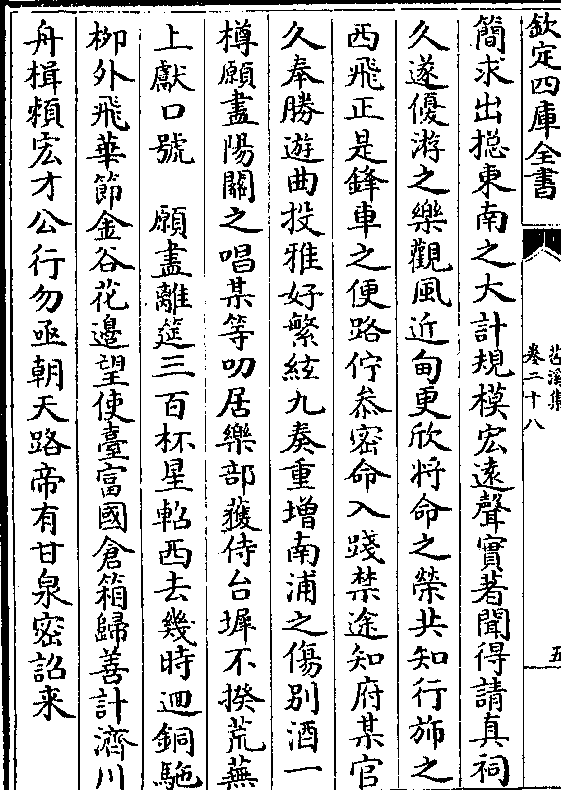 欽定四庫全書
苕溪集
卷二十八
五
簡求出揔東南之大計規模宏遠聲實著聞得請真祠
久遂優游之樂觀風近甸更欣将命之榮共知行斾之
西飛正是鋒車之便路佇叅密命入踐禁途知府某官
久奉勝遊曲投雅好繁絃九奏重增南浦之傷别酒一
樽願盡陽關之唱某等叨居樂部獲侍台墀不揆荒蕪
上獻口號　願盡離筵三百杯星軺西去幾時迴銅駞
栁外飛華節金谷花邉望使臺富國倉箱歸善計濟川
舟楫頼宏才公行勿亟朝天路帝有甘泉宻詔来